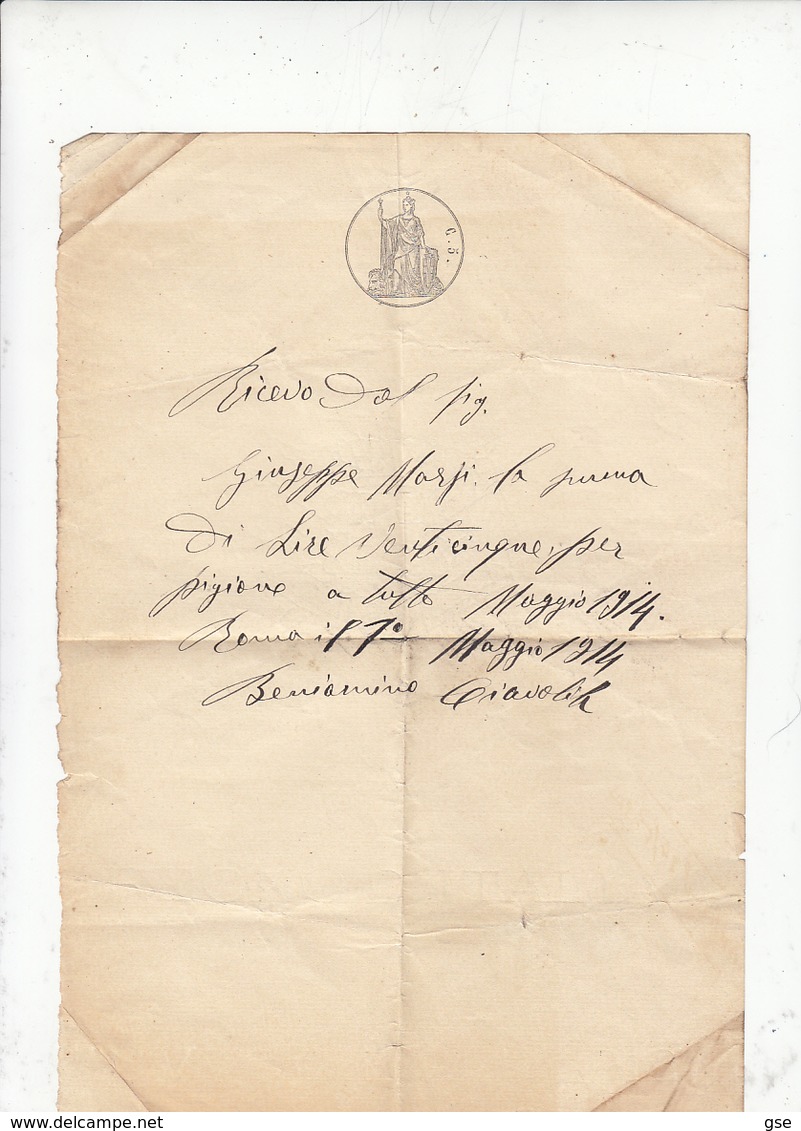 C. 5.
Ricevo dal sig.
Giuseppe Marsi. la summa
di Lire Venticinque, per
pigione a tutto Maggio 1914.
Roma 1º Maggio 1914
Beniamino
gse